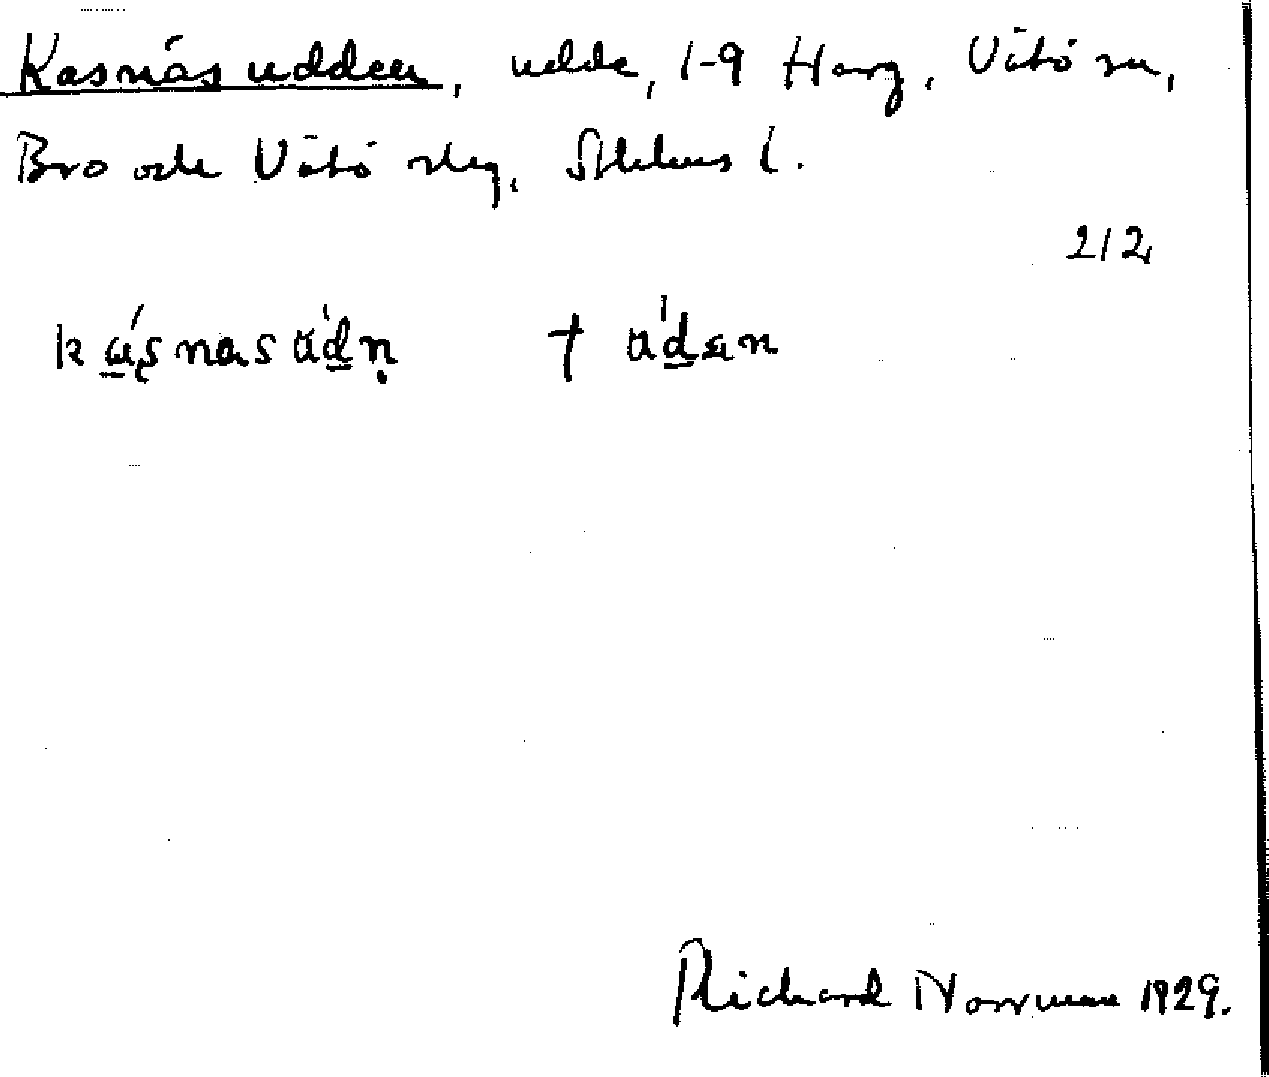 Kasnäsudden, udde, 1-9 Harg, Vätö sn,
Bro och Vätö skg, Sthlms l.
212
kásnasudn † udən
Richard Norrman 1929.